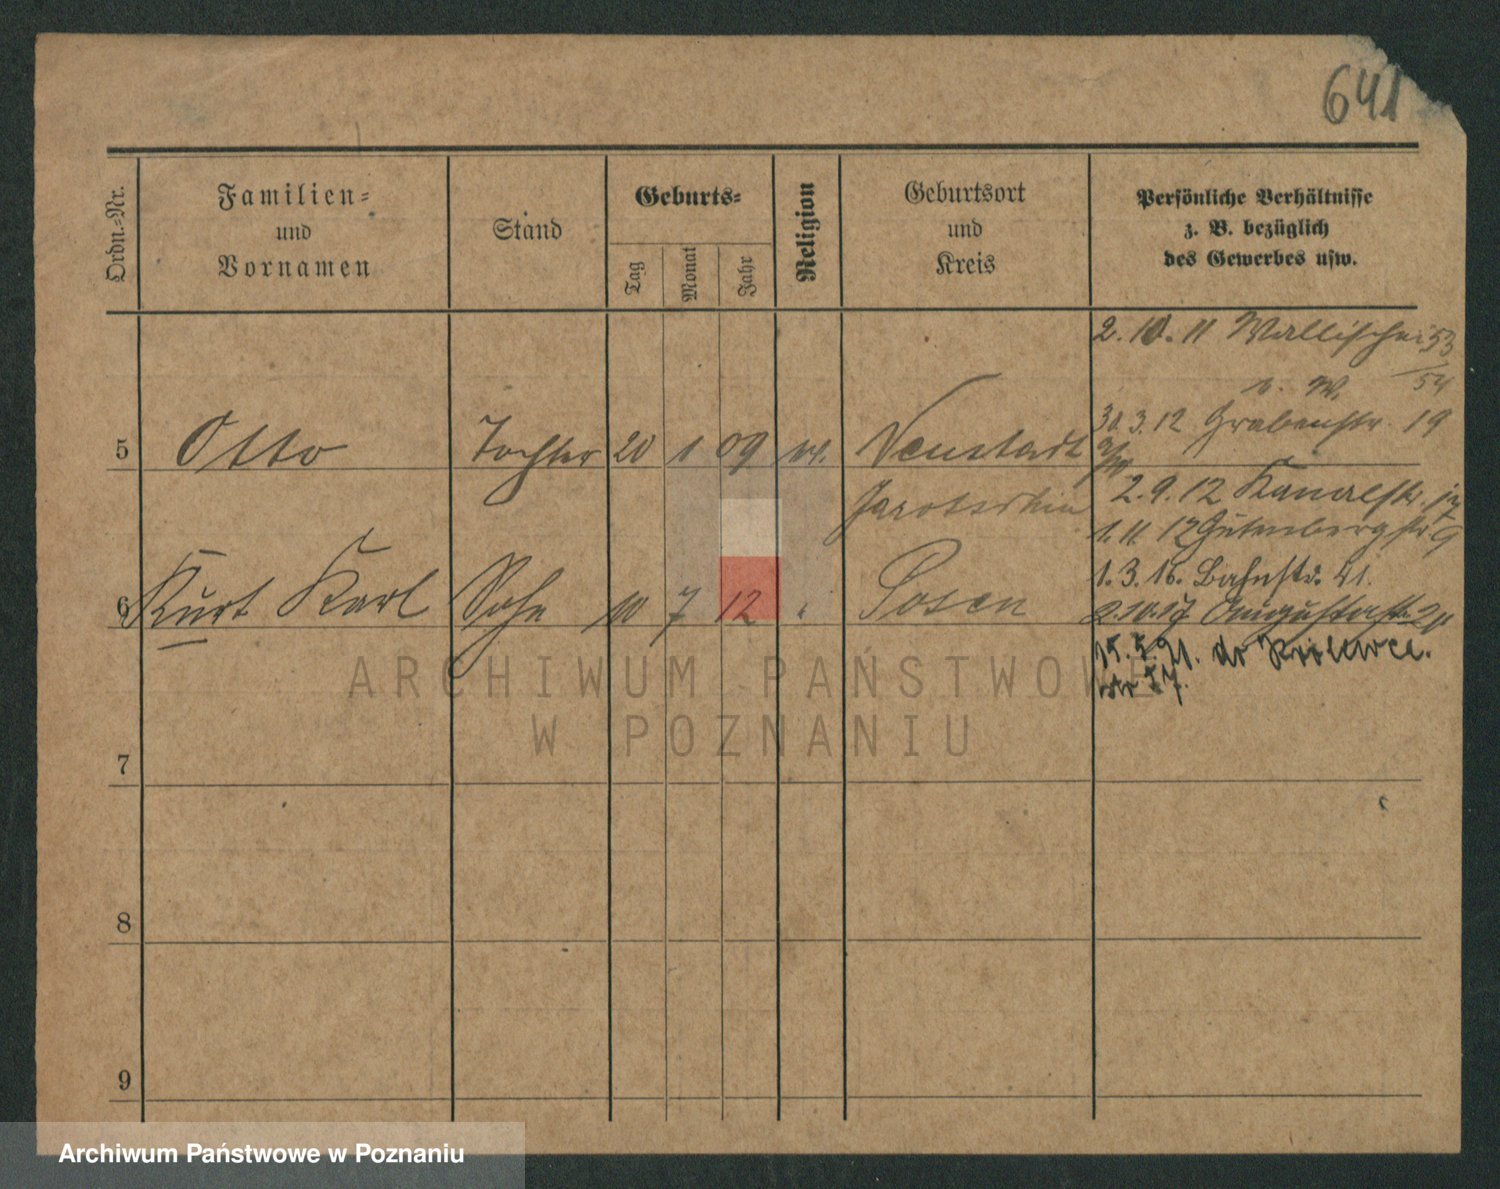 641
Ordn.-Nr.
Familien-
und
Vornamen
Stand
Geburts-
Tag
Monat
Jahr
Religion
Geburtsort
und
Kreis
Persönliche Verhältnisse
z. B. bezüglich
des Gewerbes usw.
2. 10. 11 Wallischei 53/54
b. W.
30. 3. 12 Grabenstr. 19
5 Otto Tochter 20 1 09 Neustadt
Jarotschin
2. 9. 12 Kanalstr. 17
1. 11. 12 Gutenbergstr. 9
1. 3. 16. Bahnstr. 41.
6 Kurt Karl Sohn 10 7 12 " Posen
2. 10. 17 Augustastr. 20
15. 5. 21. do
ARCHIWUM PAŃSTWOWE
W POZNANIU
7
8
9
Archiwum Państwowe w Poznaniu